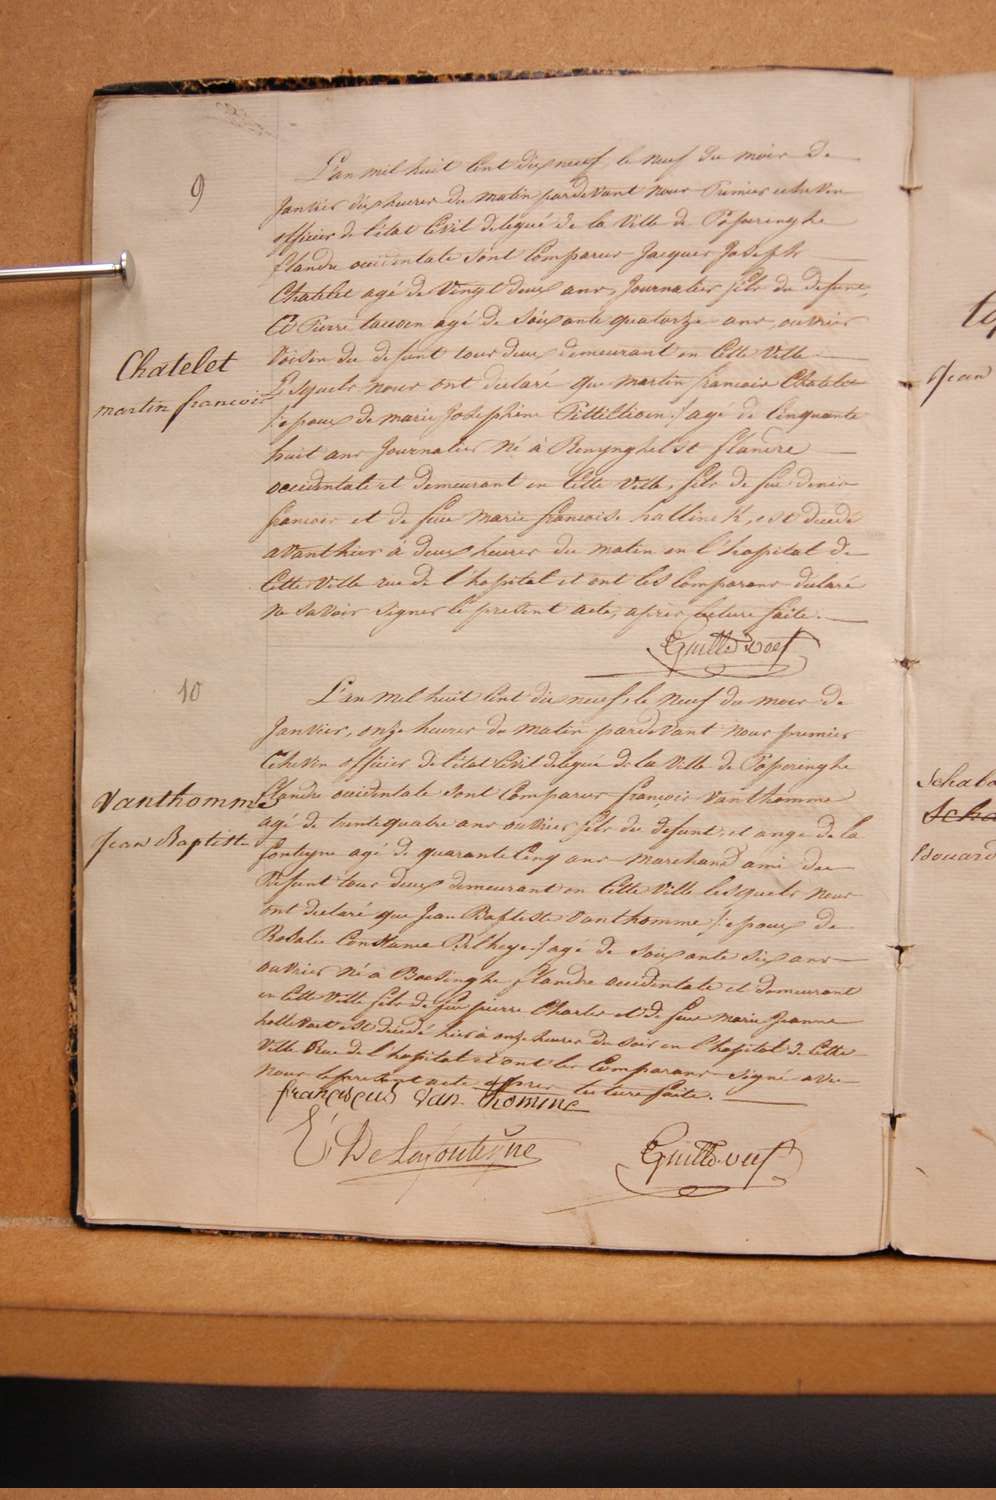 9
Chatelet
martin francois
L'an mil huit Cent dix neuf le neuf du mois de
Janvier dix heures du matin pardevant nous Premier echevin
officier de l'état Civil delegué de la Ville de Poperinghe
flandre occidentale sont Comparus Jacques Joseph
Chatelet agé de Vingt deux ans, Journalier fils du defunt,
Et Pierre agé de Soixante quatorze ans, ouvrier
Voisin du defunt tous deux demeurant en Cette Ville
Lesquels nous ont declaré que martin francois Chatelet
/: epoux de marie Josephine :/ agé de Cinquante
huit ans Journalier Né à Renynghelst flandre
occidentale et demeurant en Cette Ville, fils de feu denis
francois et de feue marie francoise hallinck, est decedé
avanthier à deux heures du matin en l'hopital de
Cette Ville rue de l'hopital et ont les Comparans declaré
ne savoir signer le present acte, apres lecture faite.
10
Vanthomme
Jean Baptiste
L'an mil huit Cent dix neuf, le neuf du mois de
Janvier, onze heures du matin pardevant nous premier
Echevin officier de l'état Civil delegué de la Ville de Poperinghe
flandre occidentale sont Comparus françois Vanthomme
agé de trente quatre ans ouvrier fils du defunt, et ange de la
fonteyne agé de quarante Cinq ans marchand ami du
defunt tous deux demeurant en Cette Ville lesquels nous
ont declaré que Jean Baptiste Vanthomme /: epoux de
Rosalie Constance :/ agé de Soixante six ans
ouvrier né à Boesinghe flandre occidentale et demeurant
en Cette Ville fils de feu pierre Charles et de feue marie Jeanne
est decedé hier à onze heures du soir en l'hopital de Cette
Ville Rue de l'hopital et ont les Comparans signé avec
nous le present acte apres lecture faite.
franciscus van thomme
Jean
Edouard